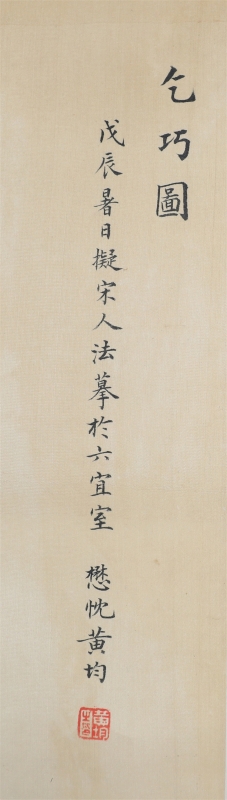 乞巧圖
戊辰暑日擬宋人法摹於六宜室 懋忱黃均